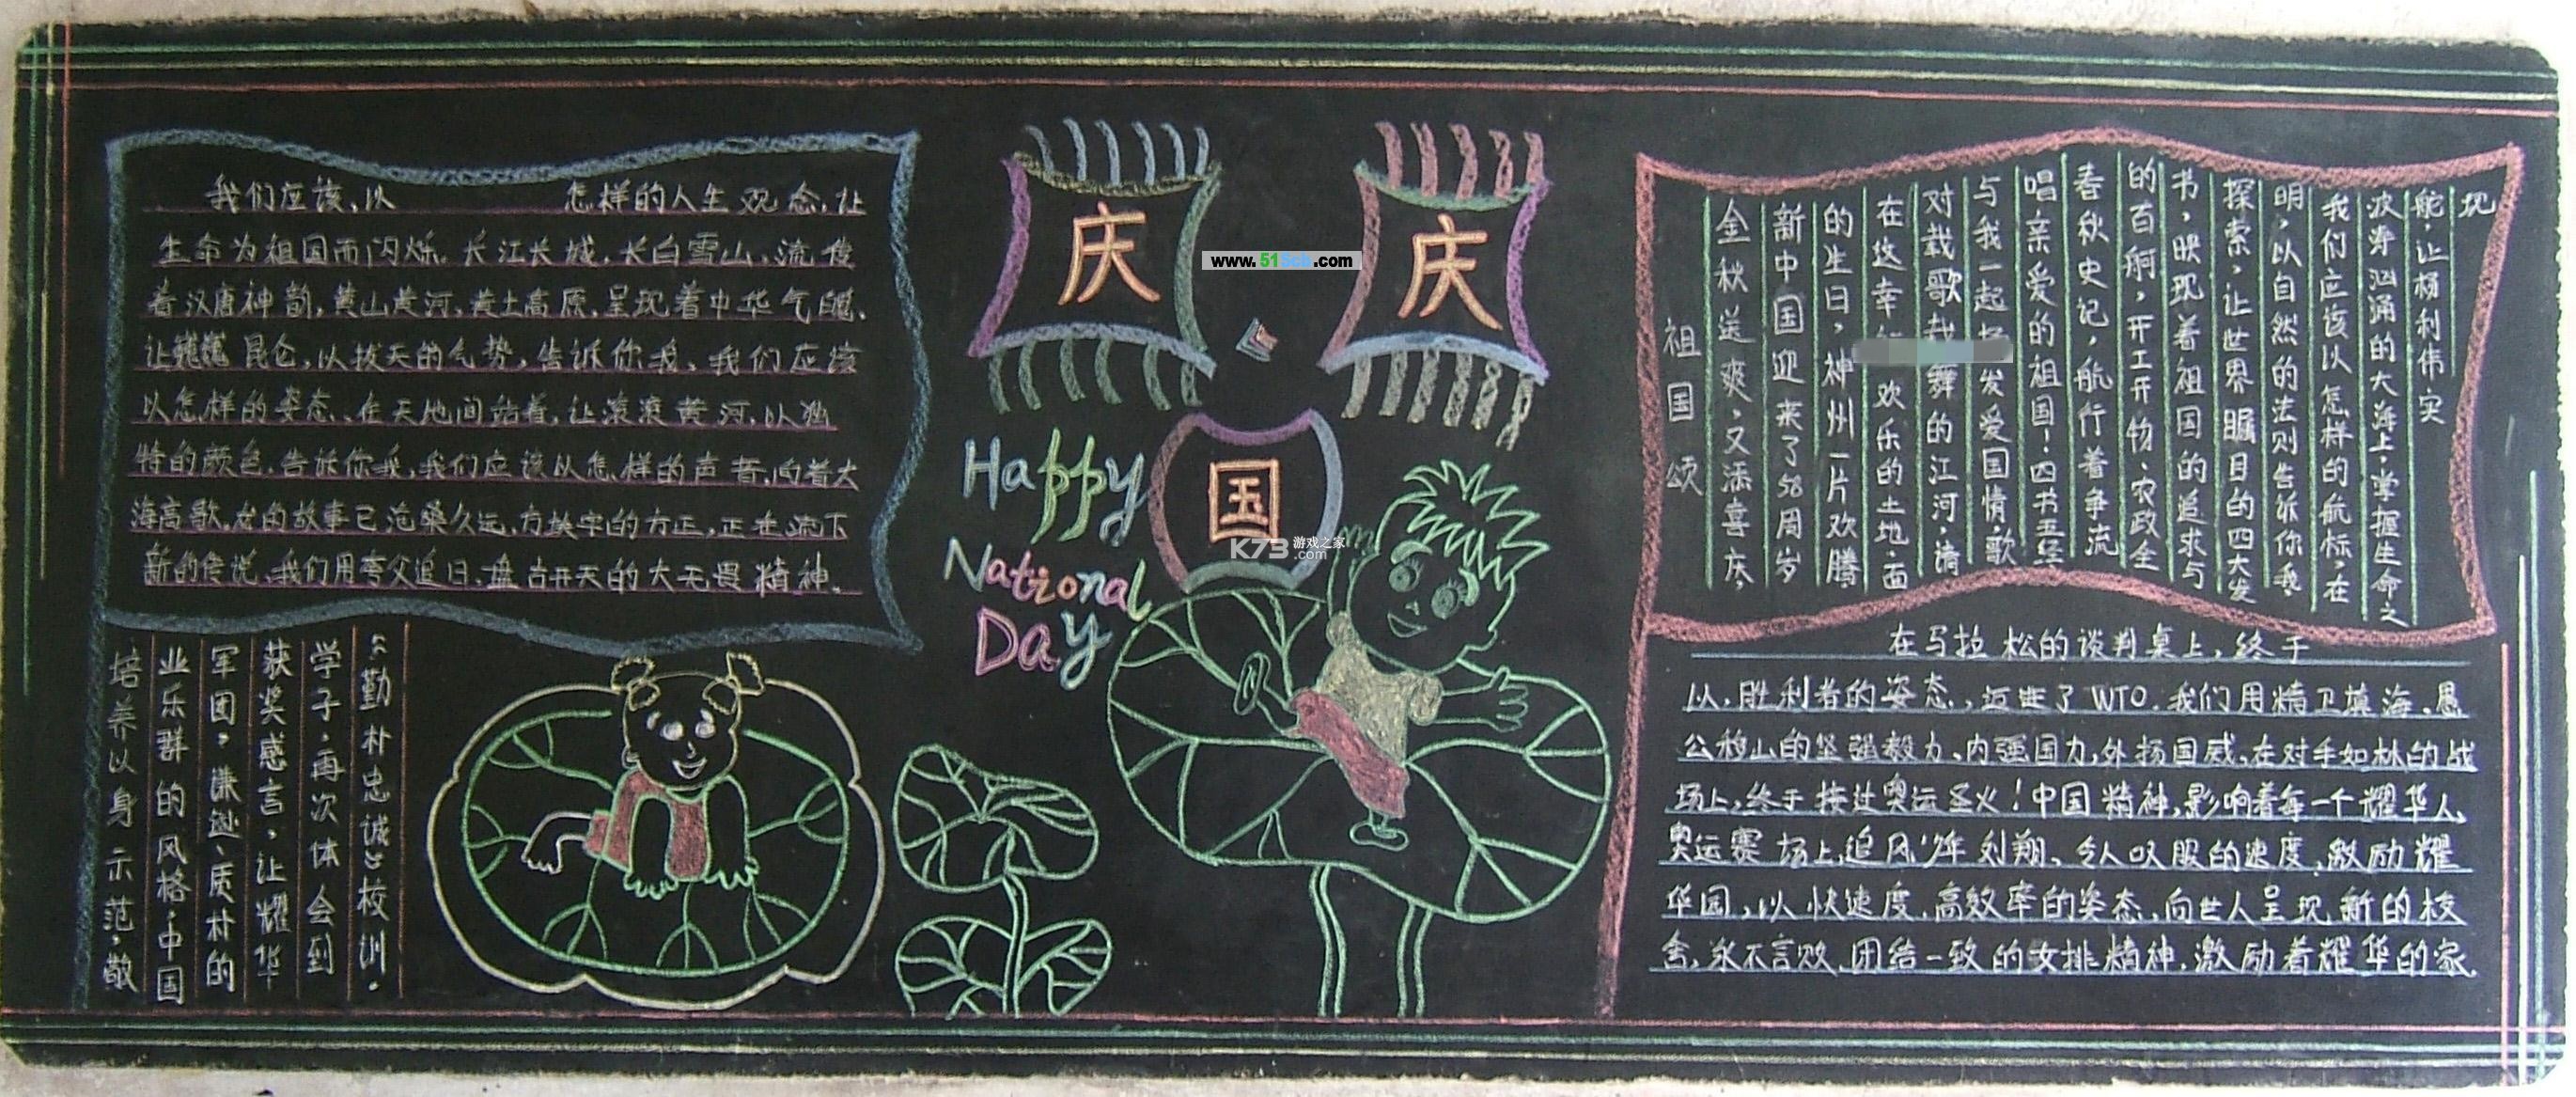 我们应该,以 怎样的人生观念,让
生命为祖国而闪烁。长江长城,长白雪山,流传
着汉唐神韵,黄山黄河,黄土高原,呈现着中华气魄,
让巍巍昆仑,以拔天的气势,告诉你我,我们应该
以怎样的姿态、在天地间站着,让滚滚黄河,以独
特的颜色,告诉你我,我们应该以怎样的声音,向着大
海高歌。龙的故事已沧桑久远,方块字的方正,正在流下
新的传说,我们用夸父追日,盘古开天的大无畏精神。
“勤朴忠诚”校训,
学子,再次体会到
获奖感言,让耀华
军团,谦逊、质朴的
业乐群的风格,中国
培养以身示范,敬
庆
庆
国
Happy
National
Day
www.51Scb.com
K73 游戏之家
.com
祖国颂
金秋送爽,又添喜庆,
新中国迎来了58周岁
的生日,神州一片欢腾
在这幸 欢乐的土地,面
对载歌载舞的江河,请
与我一起 发爱国情,歌
唱亲爱的祖国!四书五经
春秋史记,航行着争流
的百舸,开工开物、农政全
书,映现着祖国的追求与
探索,让世界瞩目的四大发
明,以自然的法则告诉你我
我们应该以怎样的航标,在
波涛汹涌的大海上,掌握生命之
舵,让杨利伟实
现
在马拉松的谈判桌上,终于
以,胜利者的姿态,迈进了WTO.我们用精卫填海、愚
公移山的坚强毅力,内强国力,外扬国威,在对手如林的战
场上,终于接过奥运圣火!中国精神,影响着每一个耀华人,
奥运赛场上,追风少年刘翔、令人叹服的速度,激励耀
华园,以快速度,高效率的姿态,向世人呈现新的校
舍,永不言败,团结一致的女排精神,激励着耀华的家,